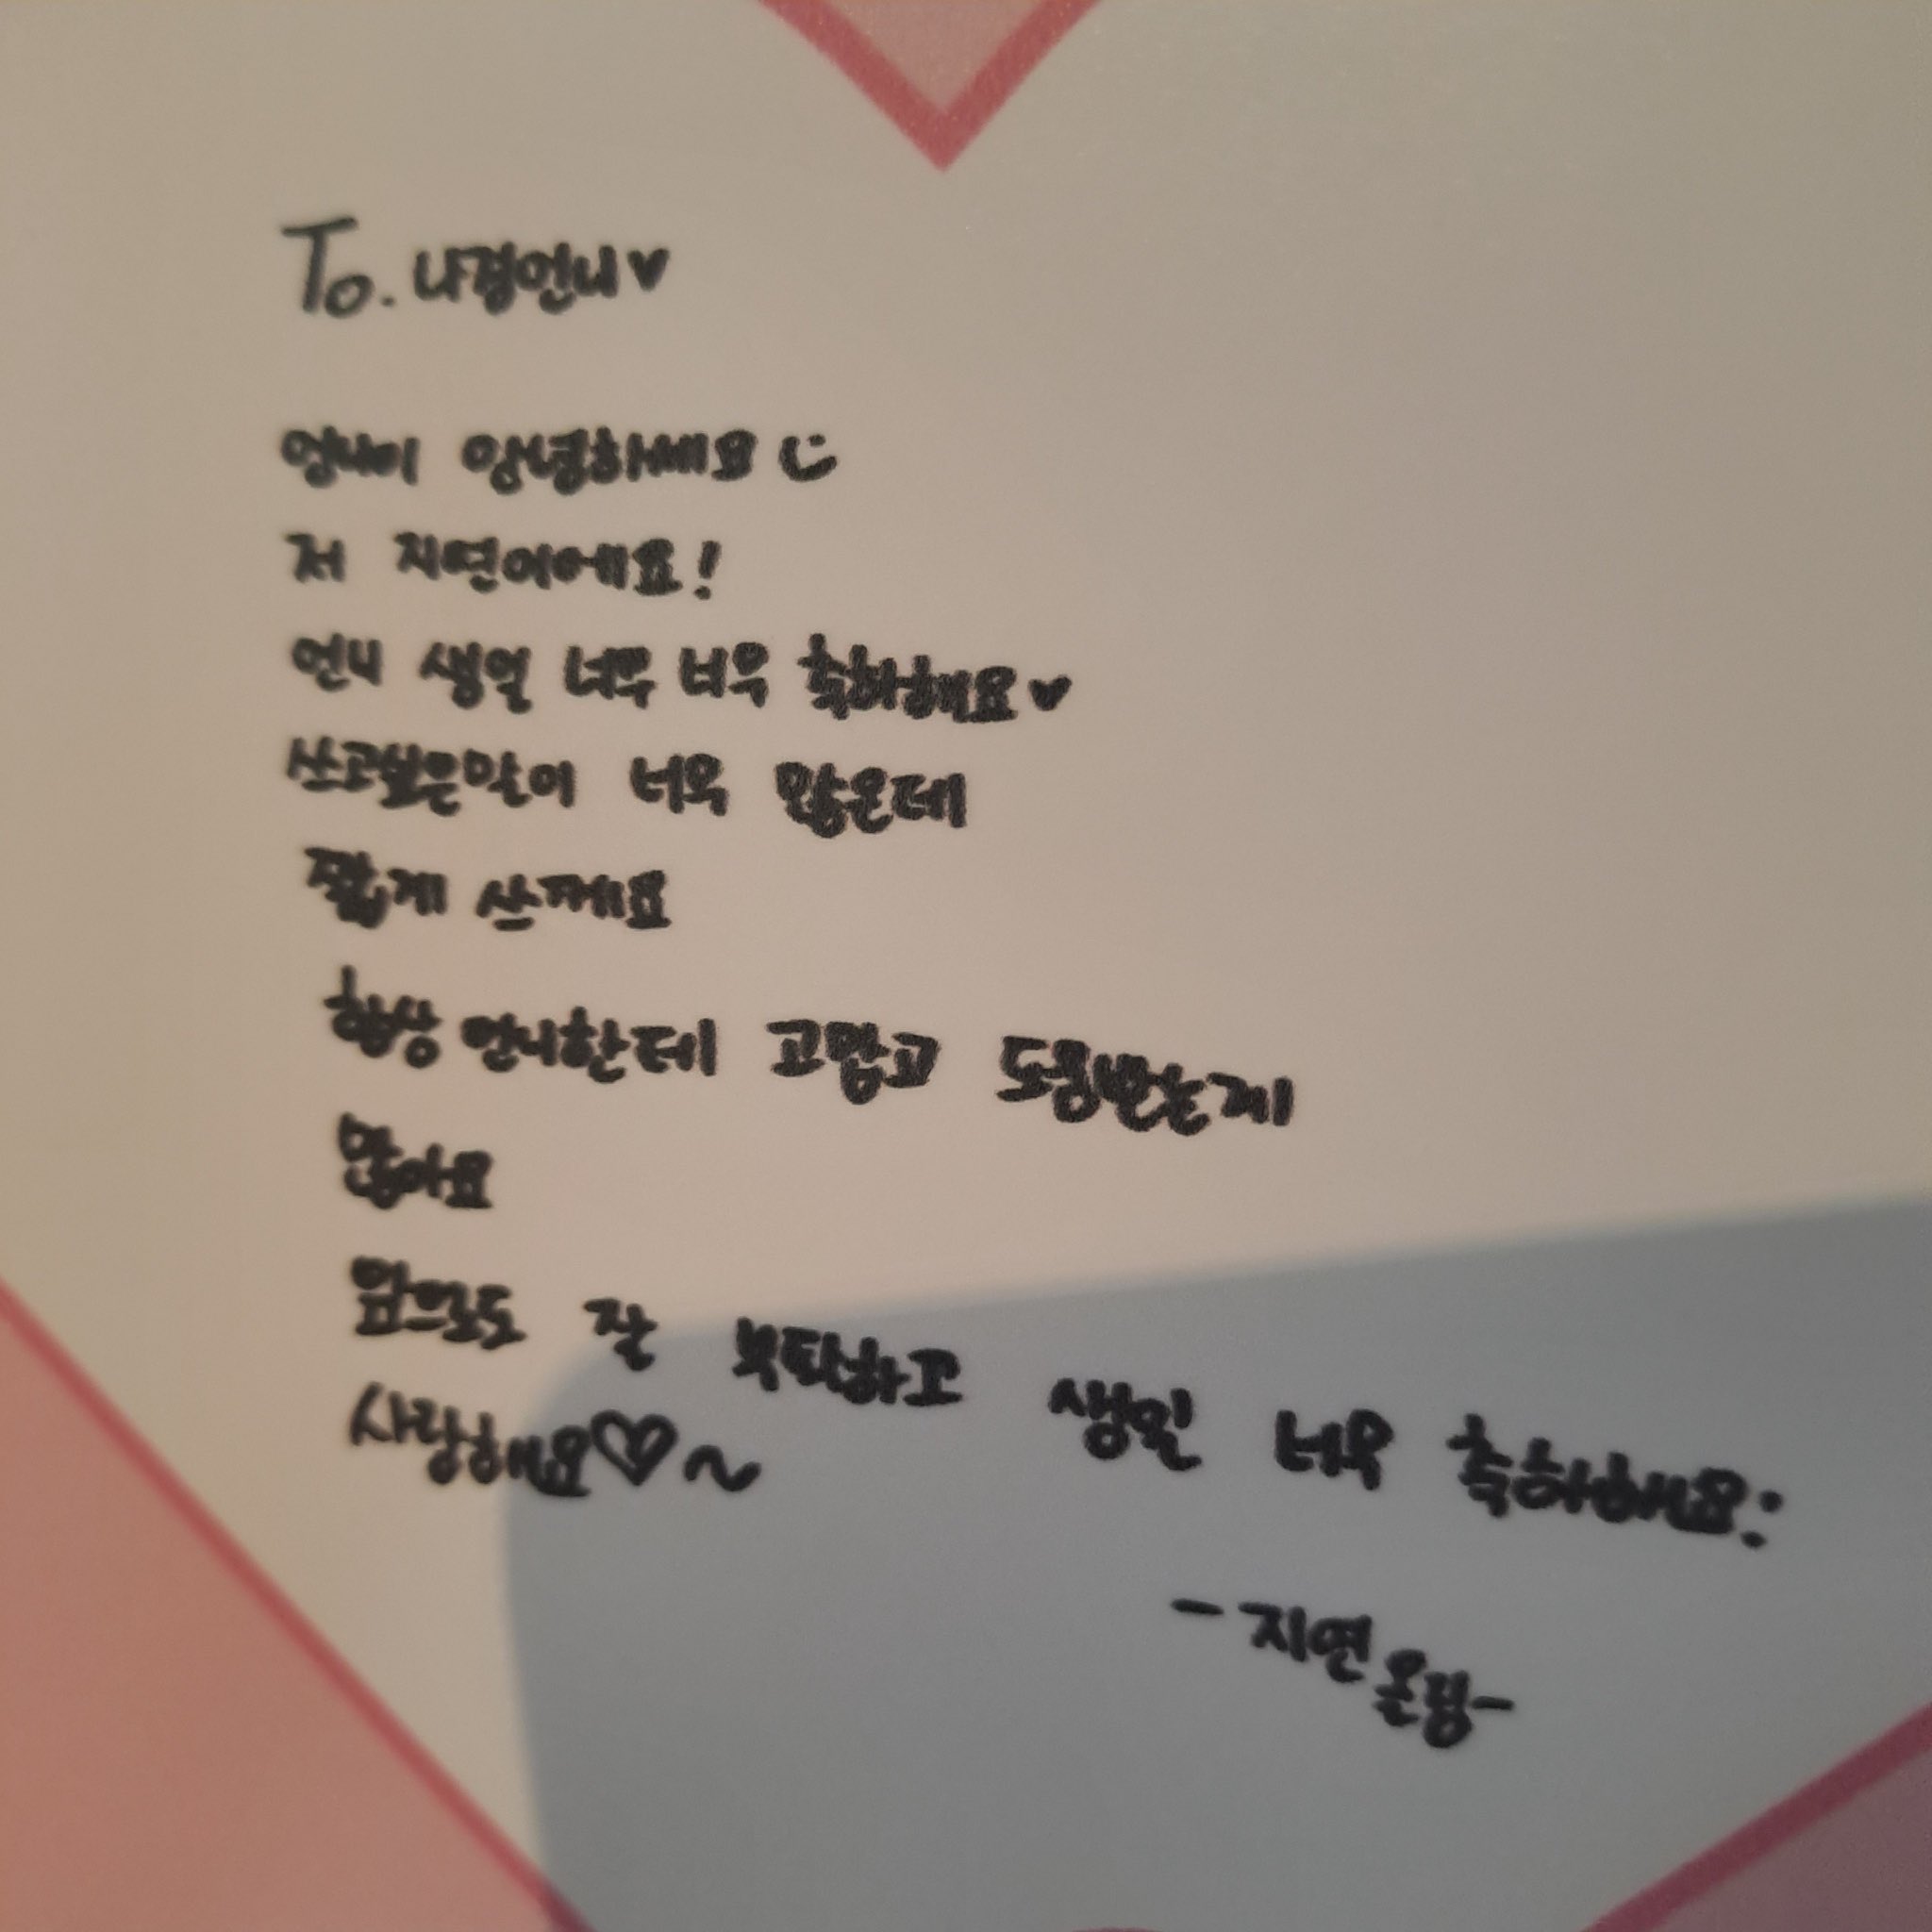 To. 나경언니♥
엉니이 앙녕하세요
저 지연이에요!
언니 생일 너무 너무 축하해요♥
쓰고싶은말이 너무 많은데
짧게 쓰께요
항상 언니한테 고맙고 도움받는게
많아요
앞으로도 잘 부탁하고 생일 너무 축하해요:
사랑해요♡~
-지연올림-